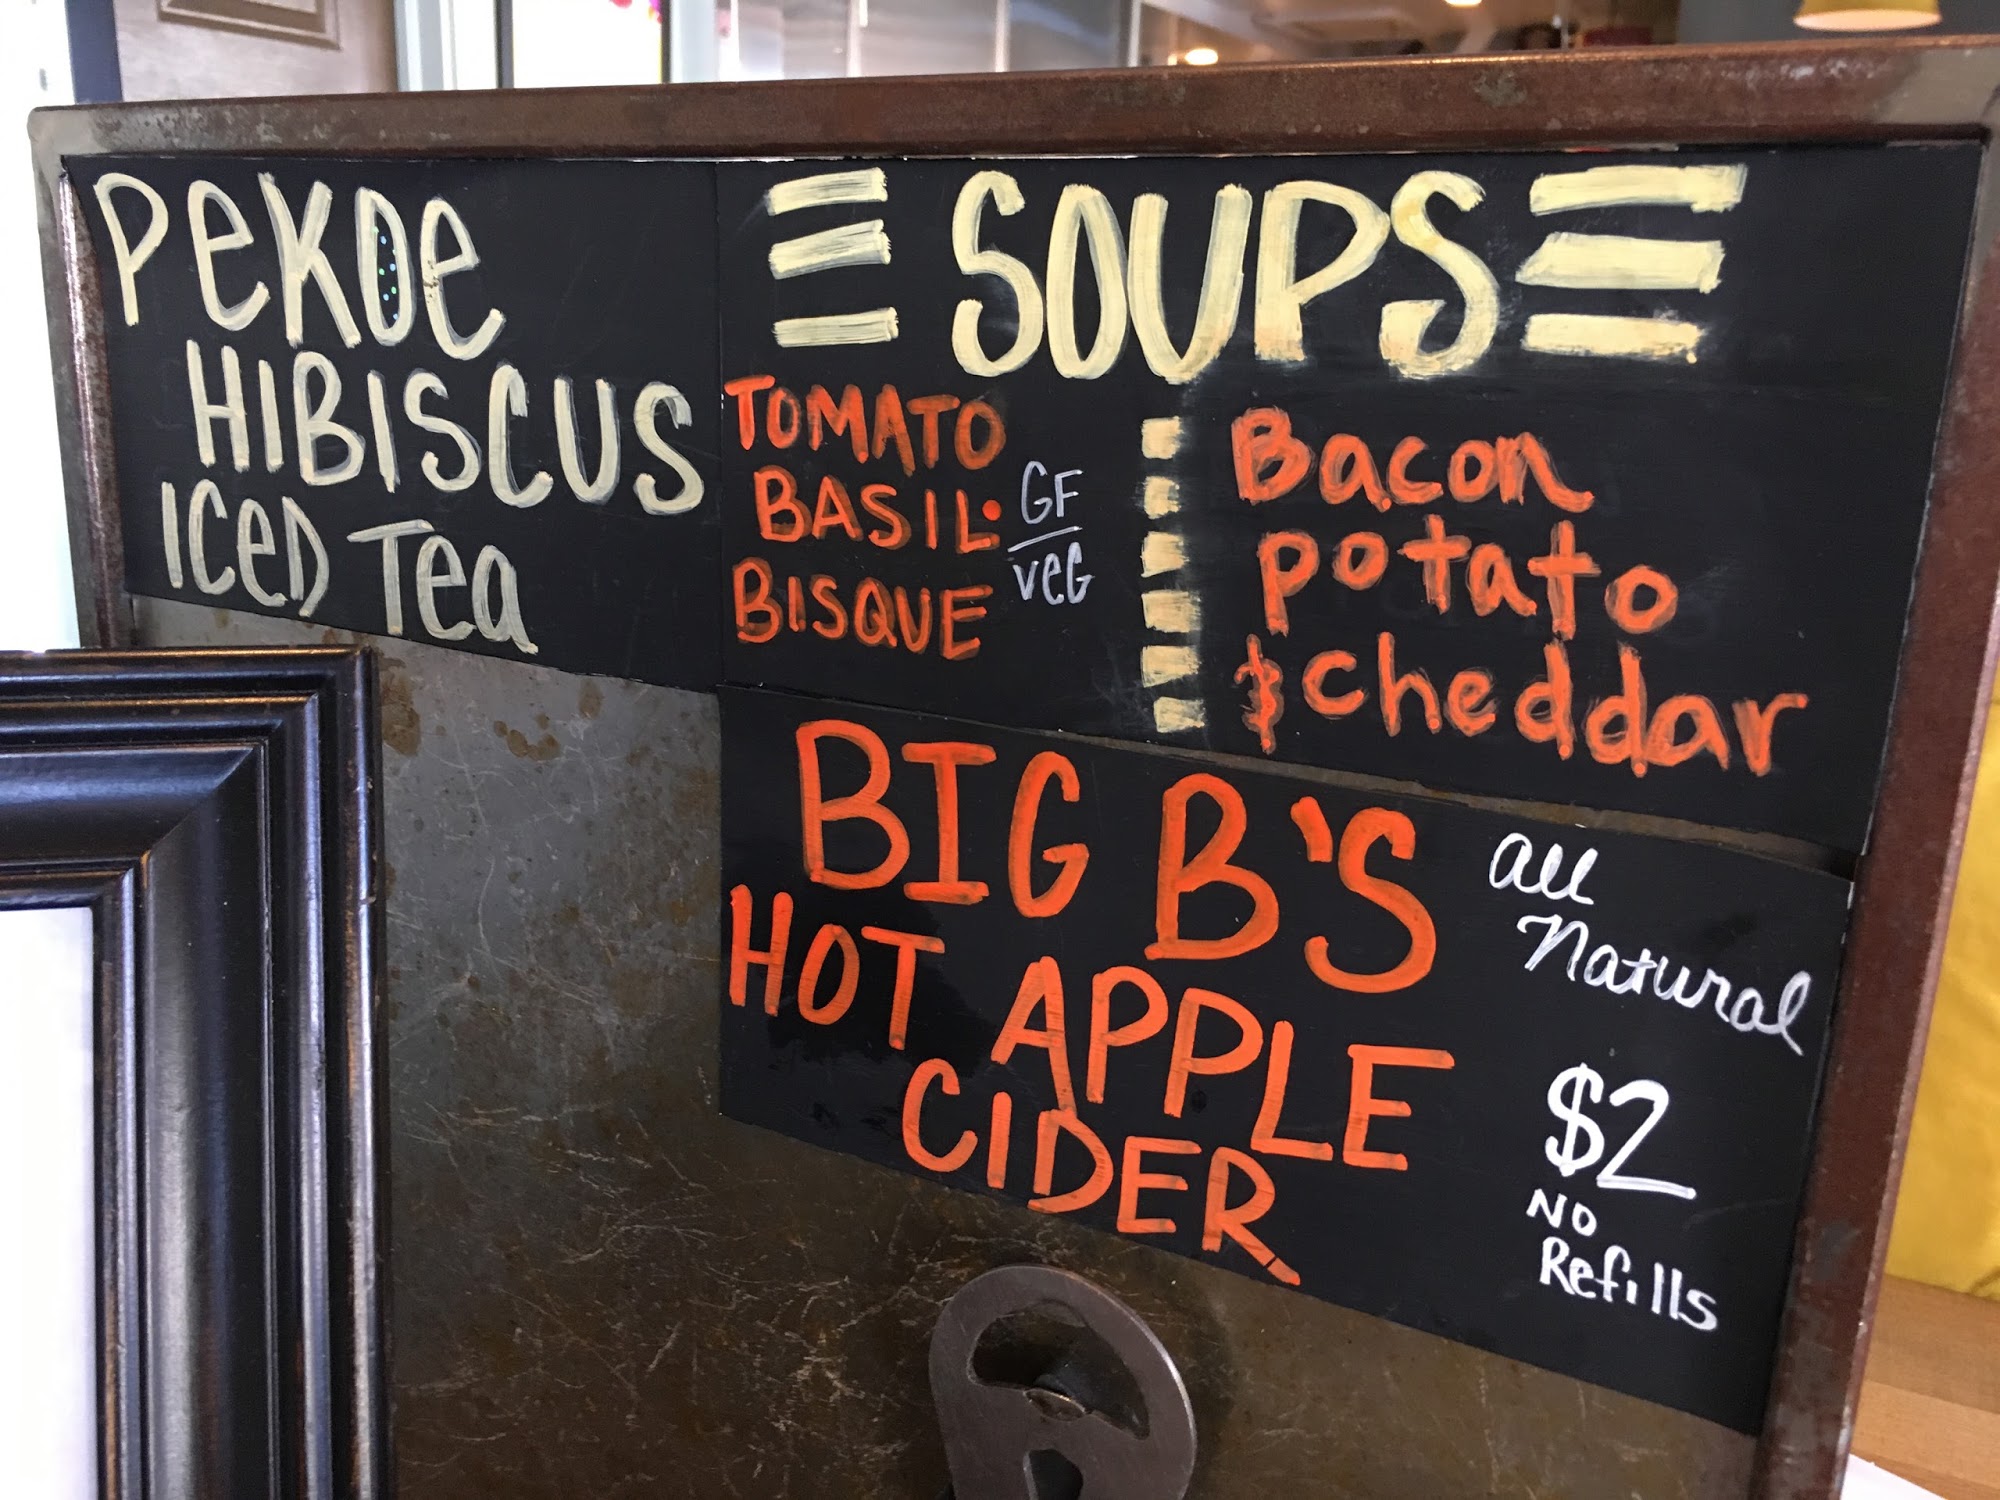 PeKOe
HIBISCUS
ICeD Tea
SOUPS
TOMATO
BASIL•
BISQUE
GF
veG
Bacon
potato
& cheddar
BIG B'S
HOT APPLE
CIDER
all
Natural
$2
NO
Refills